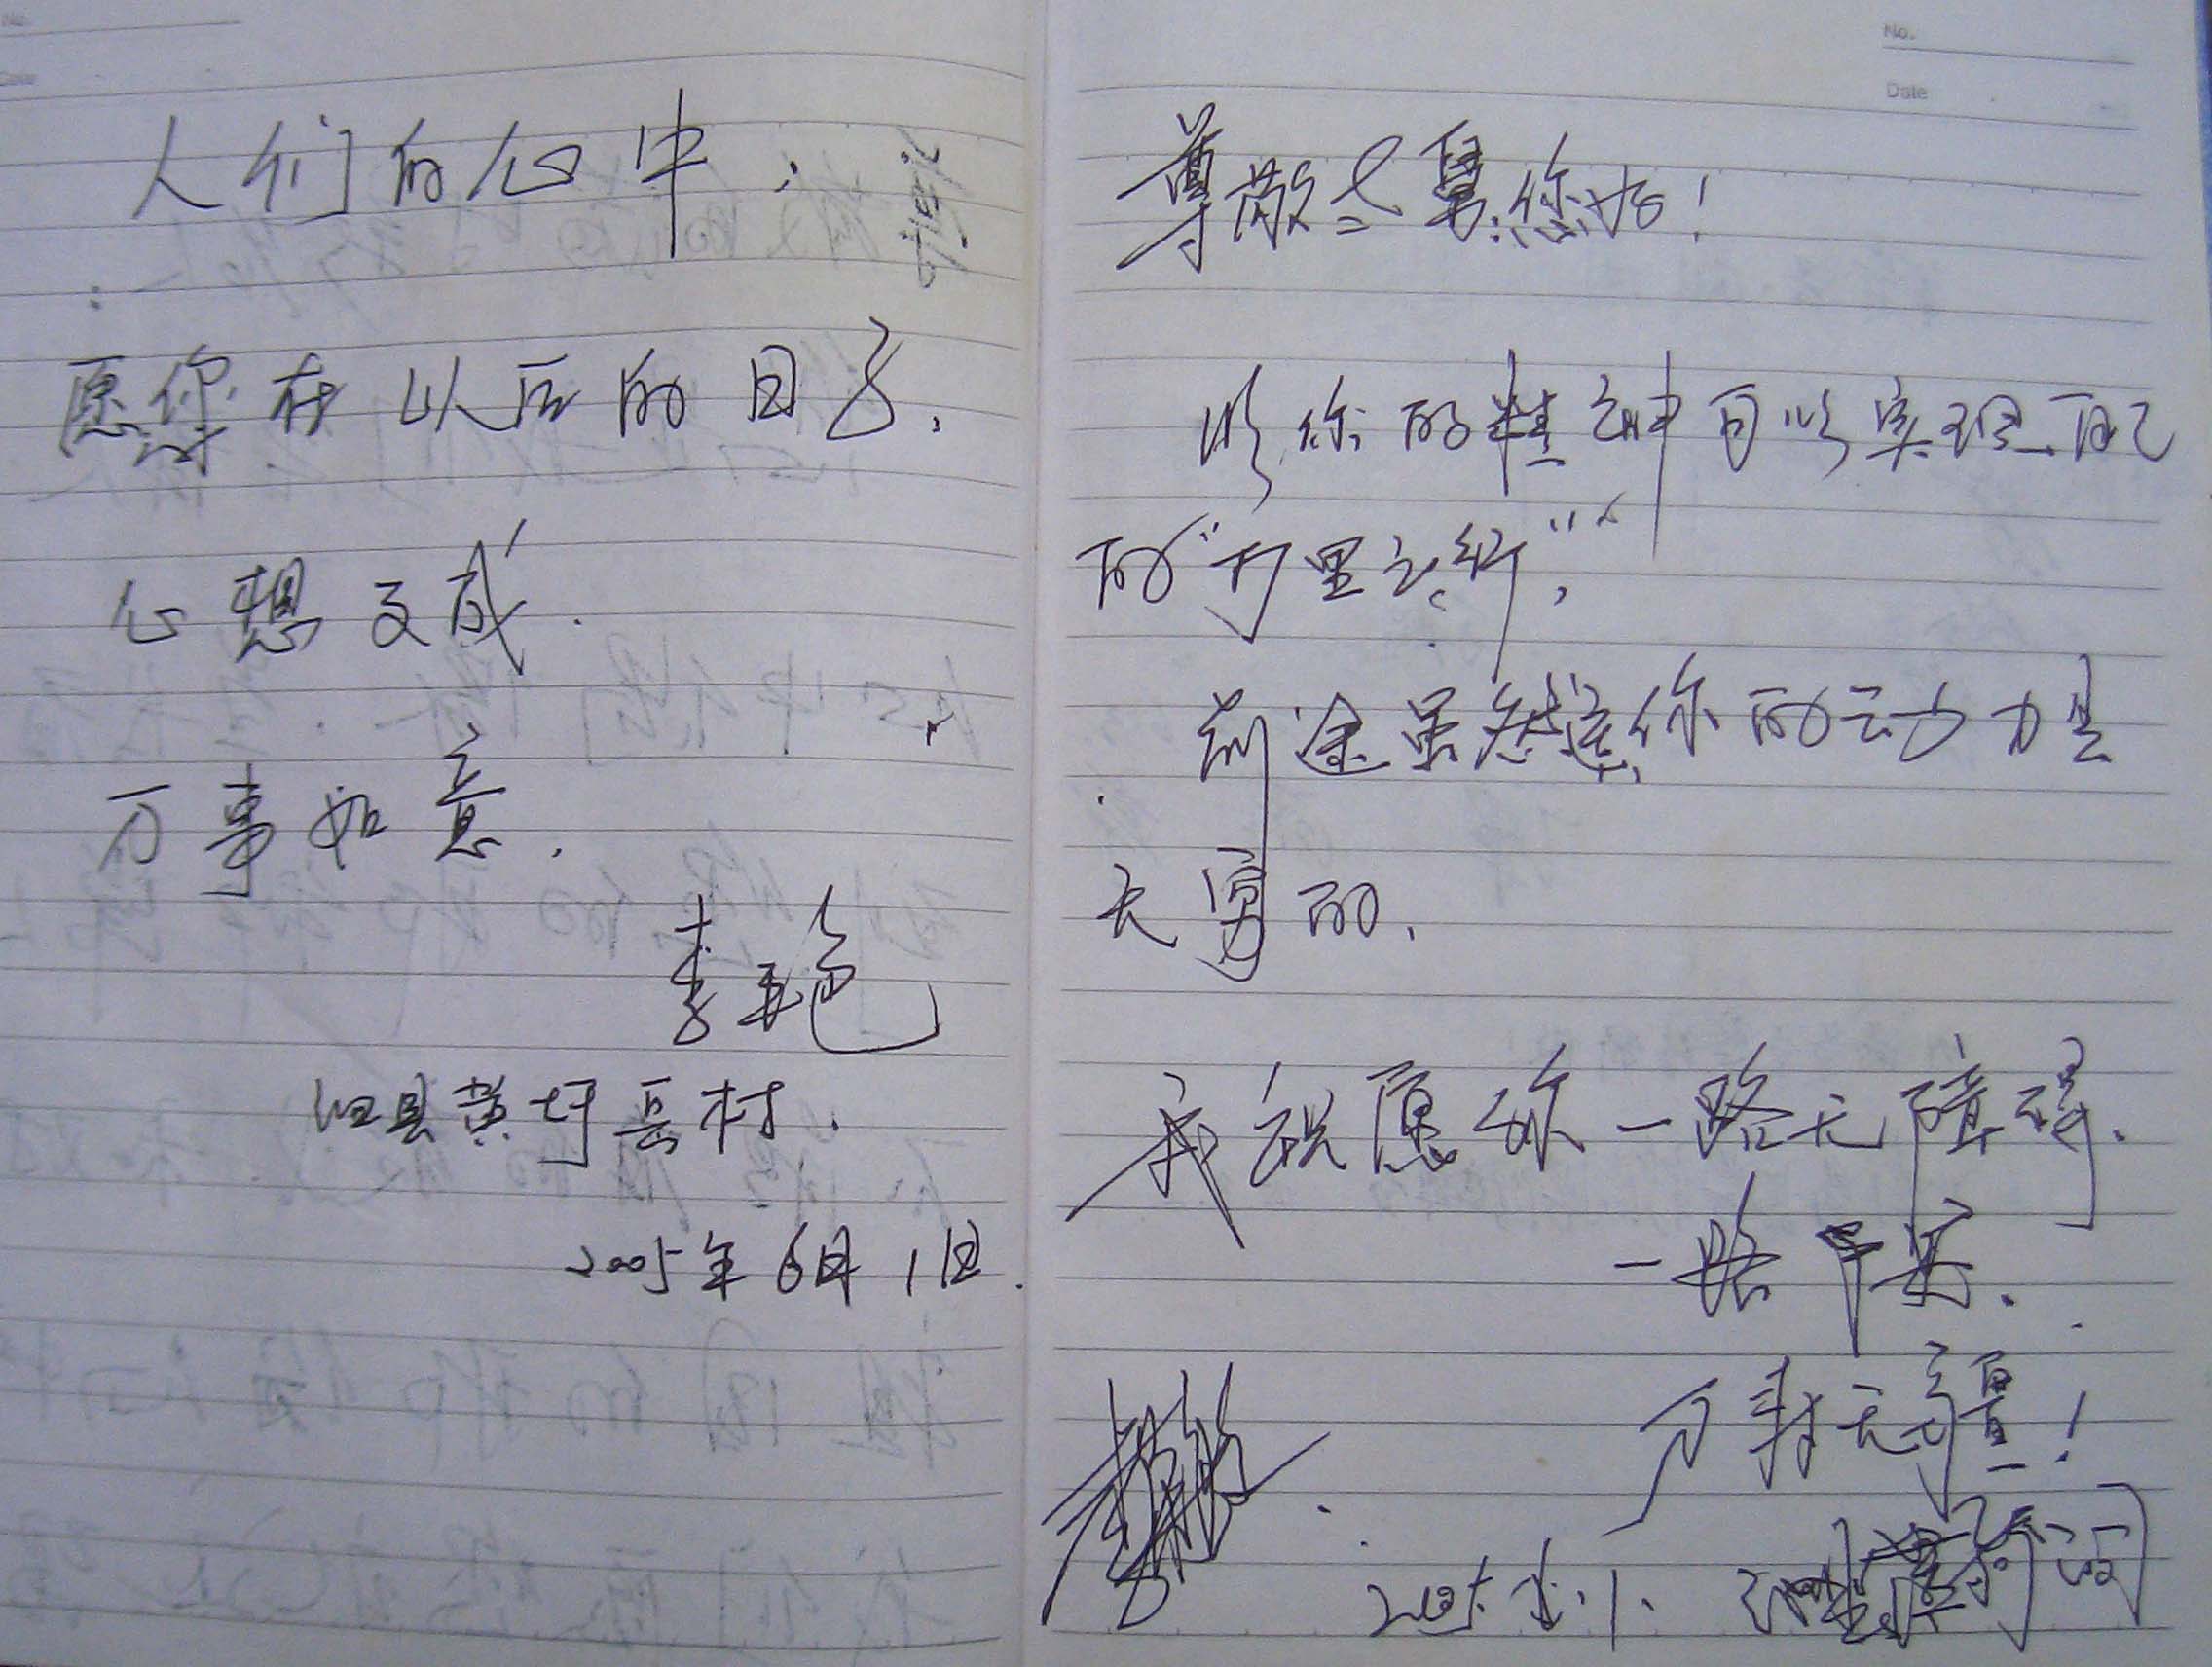 人们的心中.
愿你在以后的日子.
心想事成.
万事如意.
李艳
泗县黄圩岳村.
2005年6月1日.
No.
Date
尊敬老舅:您好!
以你的精神可以实现自己
的"万里之行",
前途虽然远你的动力是
大勇的.
我祝愿你一路无障碍.
一路平安.
万寿无疆!
2005.6.1.